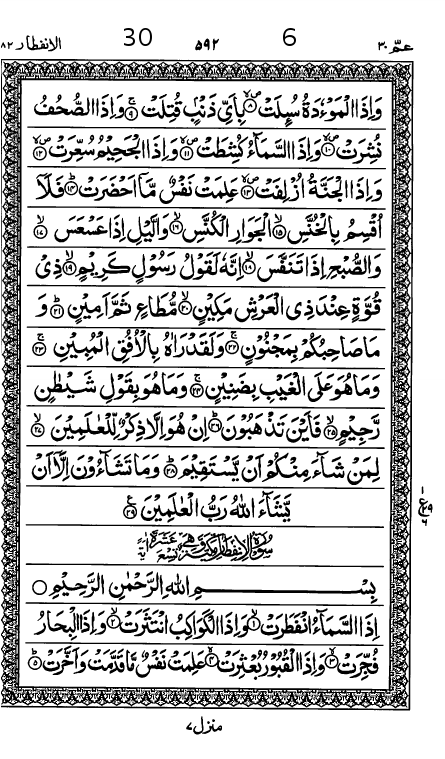 عمّ ٣٠ 6 ٥٩٢ 30 الانفطار ٨٢
وَاِذَا الْمَوْءٗدَةُ سُىِٕلَتْ ۪ۙ‏﴿۸﴾ بِاَيِّ ذَنْۢبٍ قُتِلَتْ ۚ‏﴿۹﴾ وَاِذَا الصُّحُفُ
نُشِرَتْ ۪ۙ‏﴿۱۰﴾ وَاِذَا السَّمَآءُ كُشِطَتْ ۪ۙ‏﴿۱۱﴾ وَاِذَا الْجَحِيْمُ سُعِّرَتْ ۪ۙ‏﴿۱۲﴾
وَاِذَا الْجَنَّةُ اُزْلِفَتْ ۪ۙ‏﴿۱۳﴾ عَلِمَتْ نَفْسٌ مَّاۤ اَحْضَرَتْ ؕ‏﴿۱۴﴾ فَلَاۤ
اُقْسِمُ بِالْخُنَّسِ ۙ‏﴿۱۵﴾ الْجَوَارِ الْكُنَّسِ ۙ‏﴿۱۶﴾ وَالَّيْلِ اِذَا عَسْعَسَ ۙ‏﴿۱۷﴾
وَالصُّبْحِ اِذَا تَنَفَّسَ ۙ‏﴿۱۸﴾ اِنَّهٗ لَقَوْلُ رَسُوْلٍ كَرِيْمٍ ۙ‏﴿۱۹﴾ ذِيْ
قُوَّةٍ عِنْدَ ذِي الْعَرْشِ مَكِيْنٍ ۙ‏﴿۲۰﴾ مُّطَاعٍ ثَمَّ اَمِيْنٍ ؕ‏﴿۲۱﴾ وَ
مَا صَاحِبُكُمْ بِمَجْنُوْنٍ ۚ‏﴿۲۲﴾ وَلَقَدْ رَاٰهُ بِالْاُفُقِ الْمُبِيْنِ ۚ‏﴿۲۳﴾
وَمَا هُوَ عَلَى الْغَيْبِ بِضَنِيْنٍ ۚ‏﴿۲۴﴾ وَمَا هُوَ بِقَوْلِ شَيْطٰنٍ
رَّجِيْمٍ ۙ‏﴿۲۵﴾ فَاَيْنَ تَذْهَبُوْنَ ؕ‏﴿۲۶﴾ اِنْ هُوَ اِلَّا ذِكْرٌ لِّلْعٰلَمِيْنَ ۙ‏﴿۲۷﴾
لِمَنْ شَآءَ مِنْكُمْ اَنْ يَّسْتَقِيْمَ ؕ‏﴿۲۸﴾ وَمَا تَشَآءُوْنَ اِلَّاۤ اَنْ
يَّشَآءَ اللّٰهُ رَبُّ الْعٰلَمِيْنَ ‏﴿۲۹﴾ ع
۱ ع ۹ ۶
بِسْمِ اللّٰهِ الرَّحْمٰنِ الرَّحِيْمِ ○
اِذَا السَّمَآءُ انْفَطَرَتْ ۙ‏﴿۱﴾ وَاِذَا الْكَوَاكِبُ انْتَثَرَتْ ۙ‏﴿۲﴾ وَاِذَا الْبِحَارُ
فُجِّرَتْ ۙ‏﴿۳﴾ وَاِذَا الْقُبُوْرُ بُعْثِرَتْ ۙ‏﴿۴﴾ عَلِمَتْ نَفْسٌ مَّا قَدَّمَتْ وَاَخَّرَتْ ؕ‏﴿۵﴾
منزل ٧